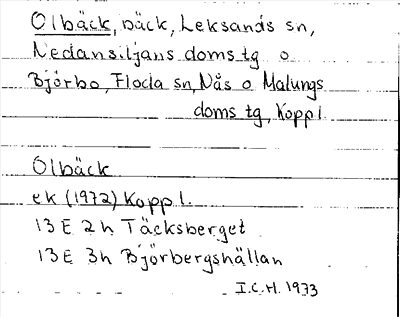 Olbäck, bäck, Leksands sn,
Nedansiljans doms tg o
Björbo, Floda sn, Nås o Malungs
doms tg, Koppl.
Olbäck
ek (1972) Koppl.
13 E 2h Täcksberget
13 E 3h Björbergshällan
I.C.H. 1973